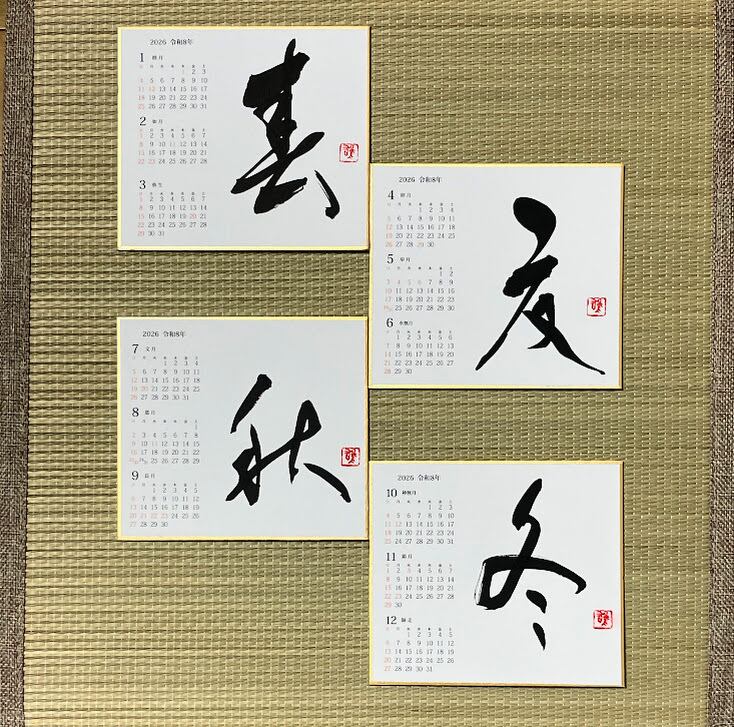 2026 令和8年
1 睦月
1 2 3
4 5 6 7 8 9 10
11 12 13 14 15 16 17
18 19 20 21 22 23 24
25 26 27 28 29 30 31
2 如月
1 2 3 4 5 6 7
8 9 10 11 12 13 14
15 16 17 18 19 20 21
22 23 24 25 26 27 28
3 弥生
1 2 3 4 5 6 7
8 9 10 11 12 13 14
15 16 17 18 19 20 21
22 23 24 25 26 27 28
29 30 31
春
2026 令和8年
4 卯月
1 2 3 4
5 6 7 8 9 10 11
12 13 14 15 16 17 18
19 20 21 22 23 24 25
26 27 28 29 30
5 皐月
1 2
3 4 5 6 7 8 9
10 11 12 13 14 15 16
17 18 19 20 21 22 23
24/31 25 26 27 28 29 30
6 水無月
1 2 3 4 5 6
7 8 9 10 11 12 13
14 15 16 17 18 19 20
21 22 23 24 25 26 27
28 29 30
夏
2026 令和8年
7 文月
1 2 3 4
5 6 7 8 9 10 11
12 13 14 15 16 17 18
19 20 21 22 23 24 25
26 27 28 29 30 31
8 葉月
1
2 3 4 5 6 7 8
9 10 11 12 13 14 15
16 17 18 19 20 21 22
23/30 24/31 25 26 27 28 29
9 長月
1 2 3 4 5
6 7 8 9 10 11 12
13 14 15 16 17 18 19
20 21 22 23 24 25 26
27 28 29 30
秋
2026 令和8年
10 神無月
1 2 3
4 5 6 7 8 9 10
11 12 13 14 15 16 17
18 19 20 21 22 23 24
25 26 27 28 29 30 31
11 霜月
1 2 3 4 5 6 7
8 9 10 11 12 13 14
15 16 17 18 19 20 21
22 23 24 25 26 27 28
29 30
12 師走
1 2 3 4 5
6 7 8 9 10 11 12
13 14 15 16 17 18 19
20 21 22 23 24 25 26
27 28 29 30 31
冬